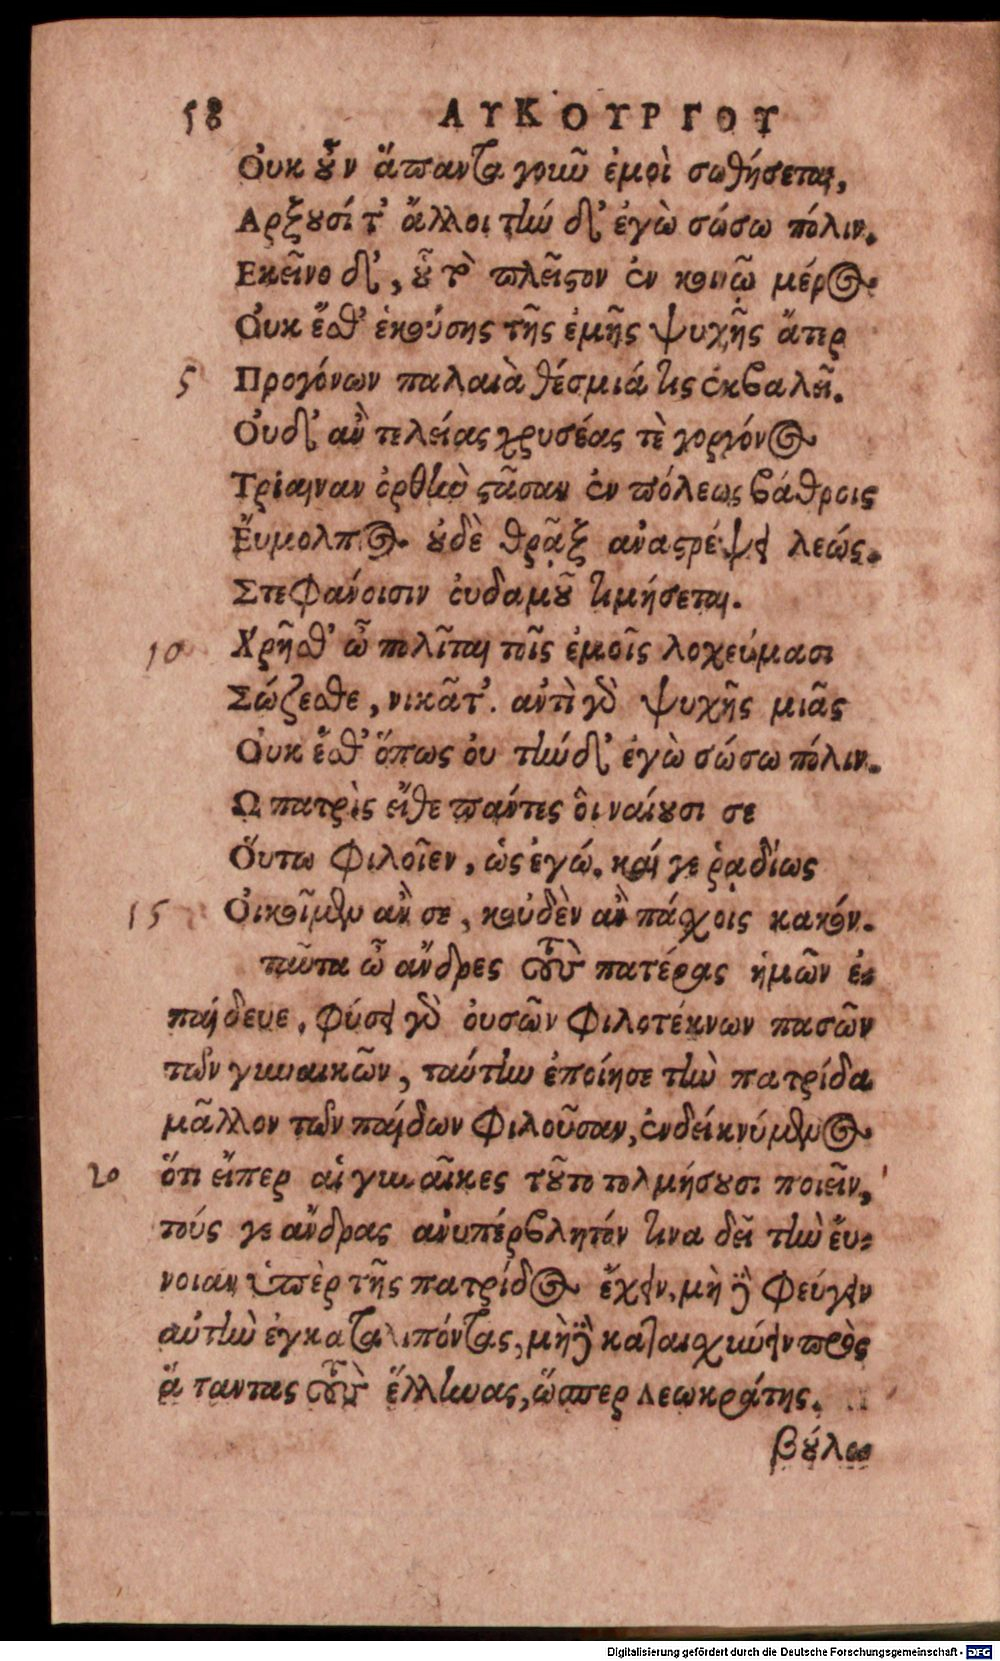 58 ΛΥΚΟΥΡΓΟΥ
Οὐκ οὖν ἅπαντα γοιωῦ ἐμοὶ σωθήσεται,
Αρξουσί τ' ἄλλοι τὴν δ' ἐγὼ σώσω πόλιν.
Εκεῖνο δ', οὗ τὸ πλεῖστον ἐν κοινῷ μέρος
Οὐκ ἔσθ' ἑκούσης τῆς ἐμῆς ψυχῆς ἄτερ
5 Προγόνων παλαιὰ θέσμιά τις ἐκβαλεῖ.
Οὐδ' ἂν τελείας χρυσέας τὲ γοργόνος
Τρίαιναν ὀρθὴν στᾶσαν ἐν πόλεως βάθροις
Ἔυμολπος. οὐδὲ θρᾷξ αναστρέψει λεώς.
Στεφάνοισιν ὀυδαμοῦ τιμήσεται.
10 Χρῆσθ' ὦ πολῖται τοῖς ἐμοῖς λοχεύμασι
Σώζεσθε, νικᾶτ'. αντὶ γὸ ψυχῆς μιᾶς
Οὐκ ἔσθ' ὅπως ὀυ τήνδ' ἐγὼ σώσω πόλιν.
Ω πατρὶς εἴθε πάντες ὃι ναίουσι σε
Οὕτω φιλοῖεν, ὡς ἐγώ. καί γε ῥᾳδίως
15 Οἰκοῖμεν ἂν σε, κοὐδὲν ἂν πάσχοις κακόν.
ταῦτα ὦ ἄνδρες τοὺς πατέρας ἡμῶν ἐ-
παίδευε. φύσει γὸ ὀυσῶν φιλοτέκνων πασῶν
τῶν γυναικῶν, ταύτην ἐποίησε τὴν πατρίδα
μᾶλλον τῶν παίδων φιλοῦσαν, ἐνδεικνύμενος
20 ὅτι εἴπερ αἱ γυναῖκες τοῦτο τολμήσουσι ποιεῖν,
τούς γε ἄνδρας ανυπέρβλητόν τινα δεῖ τὴν ἔυ-
νοιαν ὑπὲρ τῆς πατρίδος ἔχειν. μὴ δὲ φεύγειν
αὐτὴν ἐγκαταλιπόντας, μὴ δὲ καταισχύνειν πρὸς
ἅπαντας τοὺς ἕλληνας, ὥσπερ Λεωκράτης.
βούλο
Digitalisierung gefördert durch die Deutsche Forschungsgemeinschaft - DFG